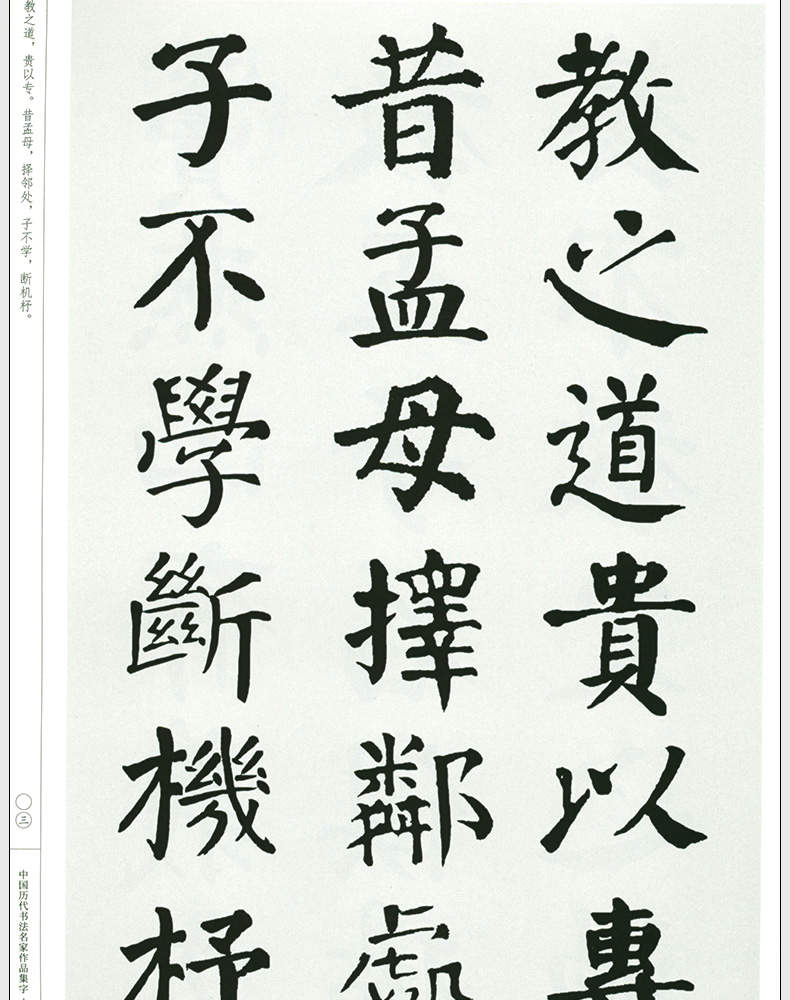 教之道貴以專
昔孟母擇鄰處
子不學斷機杼
教之道，贵以专。昔孟母，择邻处，子不学，断机杼。
〇三
中国历代书法名家作品集字·